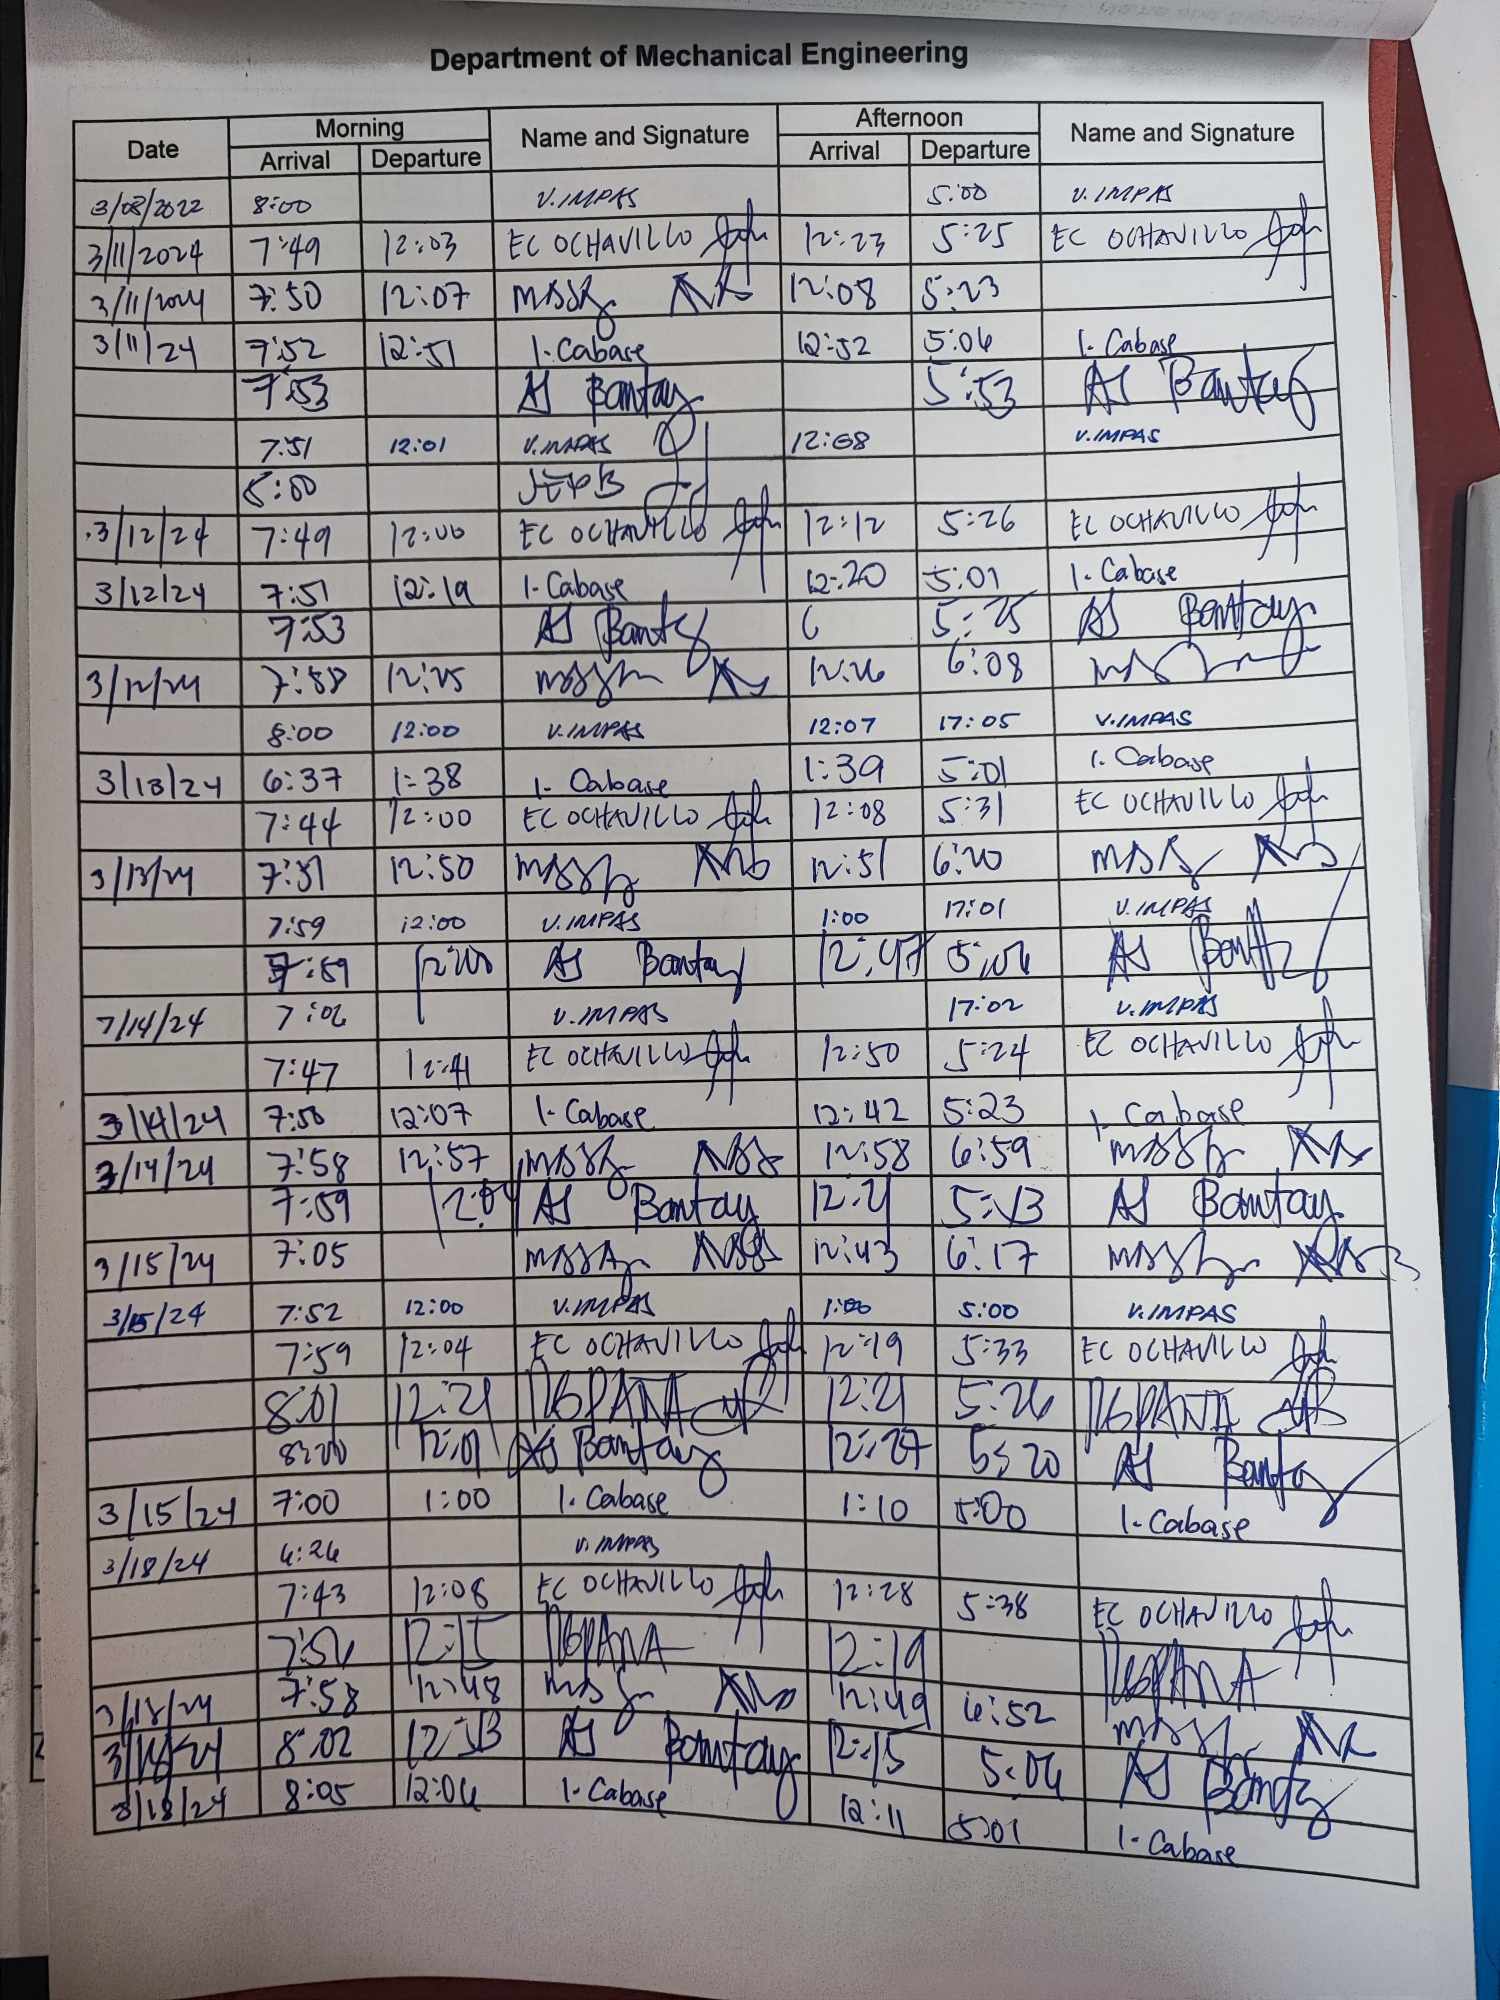 Department of Mechanical Engineering
Date Morning Name and Signature Afternoon Name and Signature
Arrival Departure Arrival Departure
3/08/2022 8:00 V.IMPAS 5:00 V.IMPAS
3/11/2024 7:49 12:03 EC OCHAVILLO 12:23 5:25 EC OCHAVILLO
3/11/2024 7:50 12:07 12:08 5:23
3/11/24 7:52 12:51 1-Cabase 12:52 5:06 1-Cabase
7:53 AJ Bantay 5:53 AJ Bantay
7:51 12:01 V.IMPAS 12:08 V.IMPAS
8:00
3/12/24 7:49 12:00 EC OCHAVILLO 12:12 5:26 EC OCHAVILLO
3/12/24 7:51 12:19 1-Cabase 12:20 5:01 1-Cabase
7:53 AJ Bantay 5:25 AJ Bantay
3/12/24 7:58 12:25 12:26 6:08
8:00 12:00 V.IMPAS 12:07 17:05 V.IMPAS
3/13/24 6:37 1:38 1-Cabase 1:39 5:01 1-Cabase
7:44 12:00 EC OCHAVILLO 12:08 5:31 EC OCHAVILLO
3/13/24 7:51 12:50 12:51 6:20
7:59 12:00 V.IMPAS 1:00 17:01 V.IMPAS
7:59 12:00 AJ Bantay 12:47 5:06 AJ
7/14/24 7:06 V.IMPAS 17:02 V.IMPAS
7:47 12:41 EC OCHAVILLO 12:50 5:24 EC OCHAVILLO
3/14/24 7:50 12:07 1-Cabase 12:42 5:23 1-Cabase
3/14/24 7:58 12:57 12:58 6:59
7:59 12:04 AJ Bantay 12:21 5:13 AJ Bantay
3/15/24 7:05 12:43 6:17
3/15/24 7:52 12:00 V.IMPAS 1:00 5:00 V.IMPAS
7:59 12:04 EC OCHAVILLO 12:19 5:33 EC OCHAVILLO
8:01 12:21 12:21 5:26
8:00 12:01 AJ Bantay 12:27 5:20 AJ Bantay
3/15/24 7:00 1:00 1-Cabase 1:10 5:00 1-Cabase
3/18/24 6:26 V.IMPAS
7:43 12:08 EC OCHAVILLO 12:28 5:38 EC OCHAVILLO
7:56 12:15 12:19
3/18/24 7:58 12:48 12:49 6:52
3/18/24 8:02 12:13 AJ Bantay 12:15 5:06 AJ Bantay
3/18/24 8:05 12:06 1-Cabase 12:11 5:01 1-Cabase